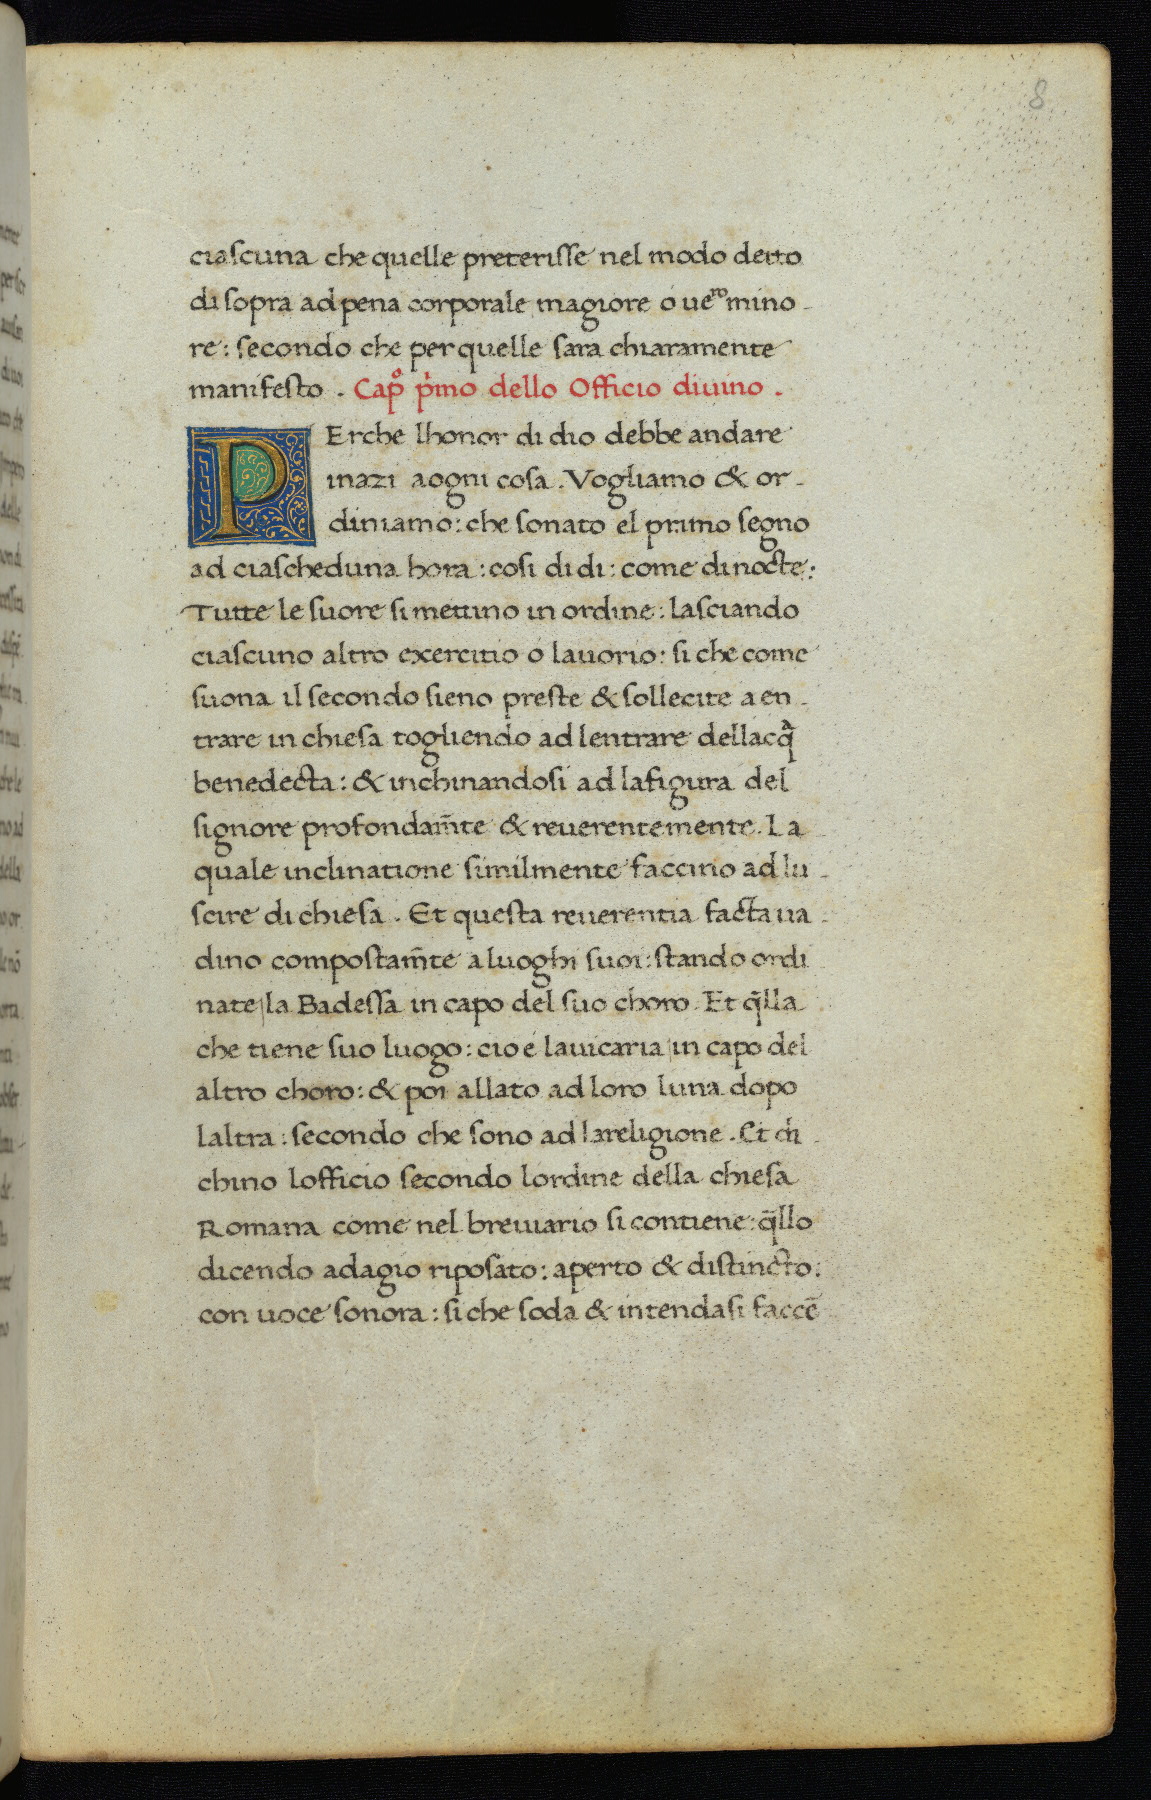 8
ciaſcuna che quelle preteriſſe nel modo detto
di ſopra ad pena corporale magiore o ueͬͦ mino-
re: ſecondo che per quelle ſara chiaramente
manifeſto. Capͦ pͥmo dello Officio diuino.
PErche lhonor di dio debbe andare
inazi aogni coſa. Vogliamo & or-
diniamo: che ſonato el primo ſegno
ad ciaſcheduna hora: coſi di di: come di nocte:
Tutte le ſuore ſi mettino in ordine: laſciando
ciaſcuno altro exercitio o lauorio: ſi che come
ſuona il ſecondo ſieno preſte & ſollecite a en-
trare in chieſa togliendo ad lentrare dellacqͣ
benedecta: & inchinandoſi ad lafigura del
ſignore profondam̃te & reuerentemente. La
quale inclinatione ſimilmente faccino ad lu-
ſcire di chieſa. Et queſta reuerentia facta ua-
dino compoſtam̃te a luoghi ſuoi: ſtando ordi
nate la Badeſſa in capo del ſuo choro. Et q̃lla
che tiene ſuo luogo: cio e lauicaria in capo del
altro choro: & poi allato ad loro luna dopo
laltra: ſecondo che ſono ad lareligione. Et di-
chino lofficio ſecondo lordine della chieſa
Romana come nel breuiario ſi contiene: q̃llo
dicendo adagio ripoſato: aperto & diſtincto:
con uoce ſonora: ſi che ſoda & intendaſi faccẽ